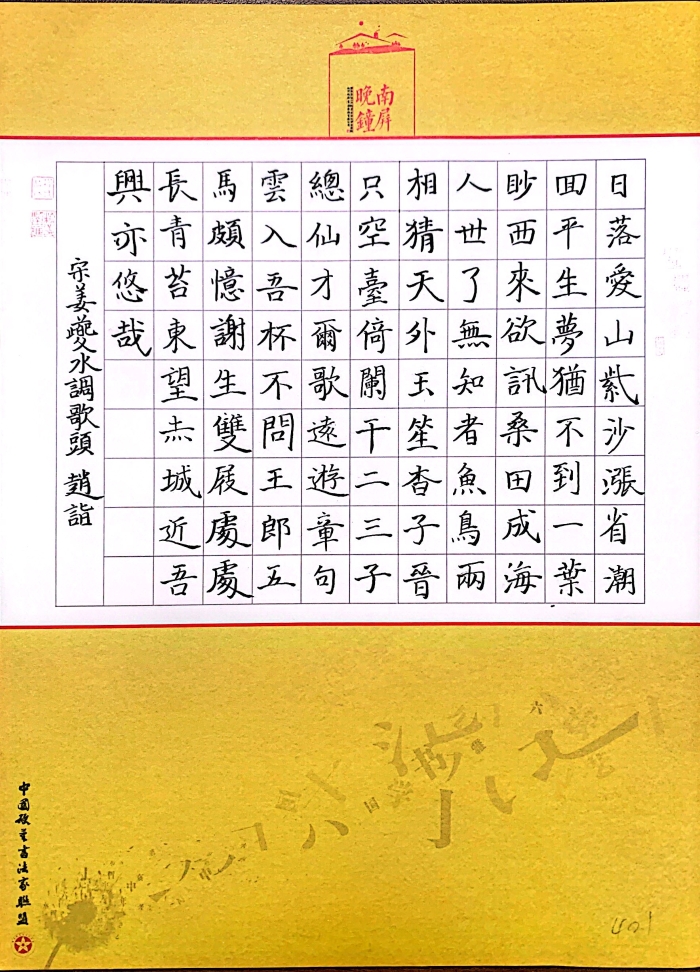 南屏
晚鐘
日落愛山紫沙漲省潮
回平生夢猶不到一葉
眇西來欲訊桑田成海
人世了無知者魚鳥兩
相猜天外玉笙杳子晉
只空臺倚闌干二三子
總仙才爾歌遠遊章句
雲入吾杯不問王郎五
馬頗憶謝生雙屐處處
長青苔東望赤城近吾
興亦悠哉
宋姜夔水調歌頭 趙詣
中國硬笔書法家聯盟